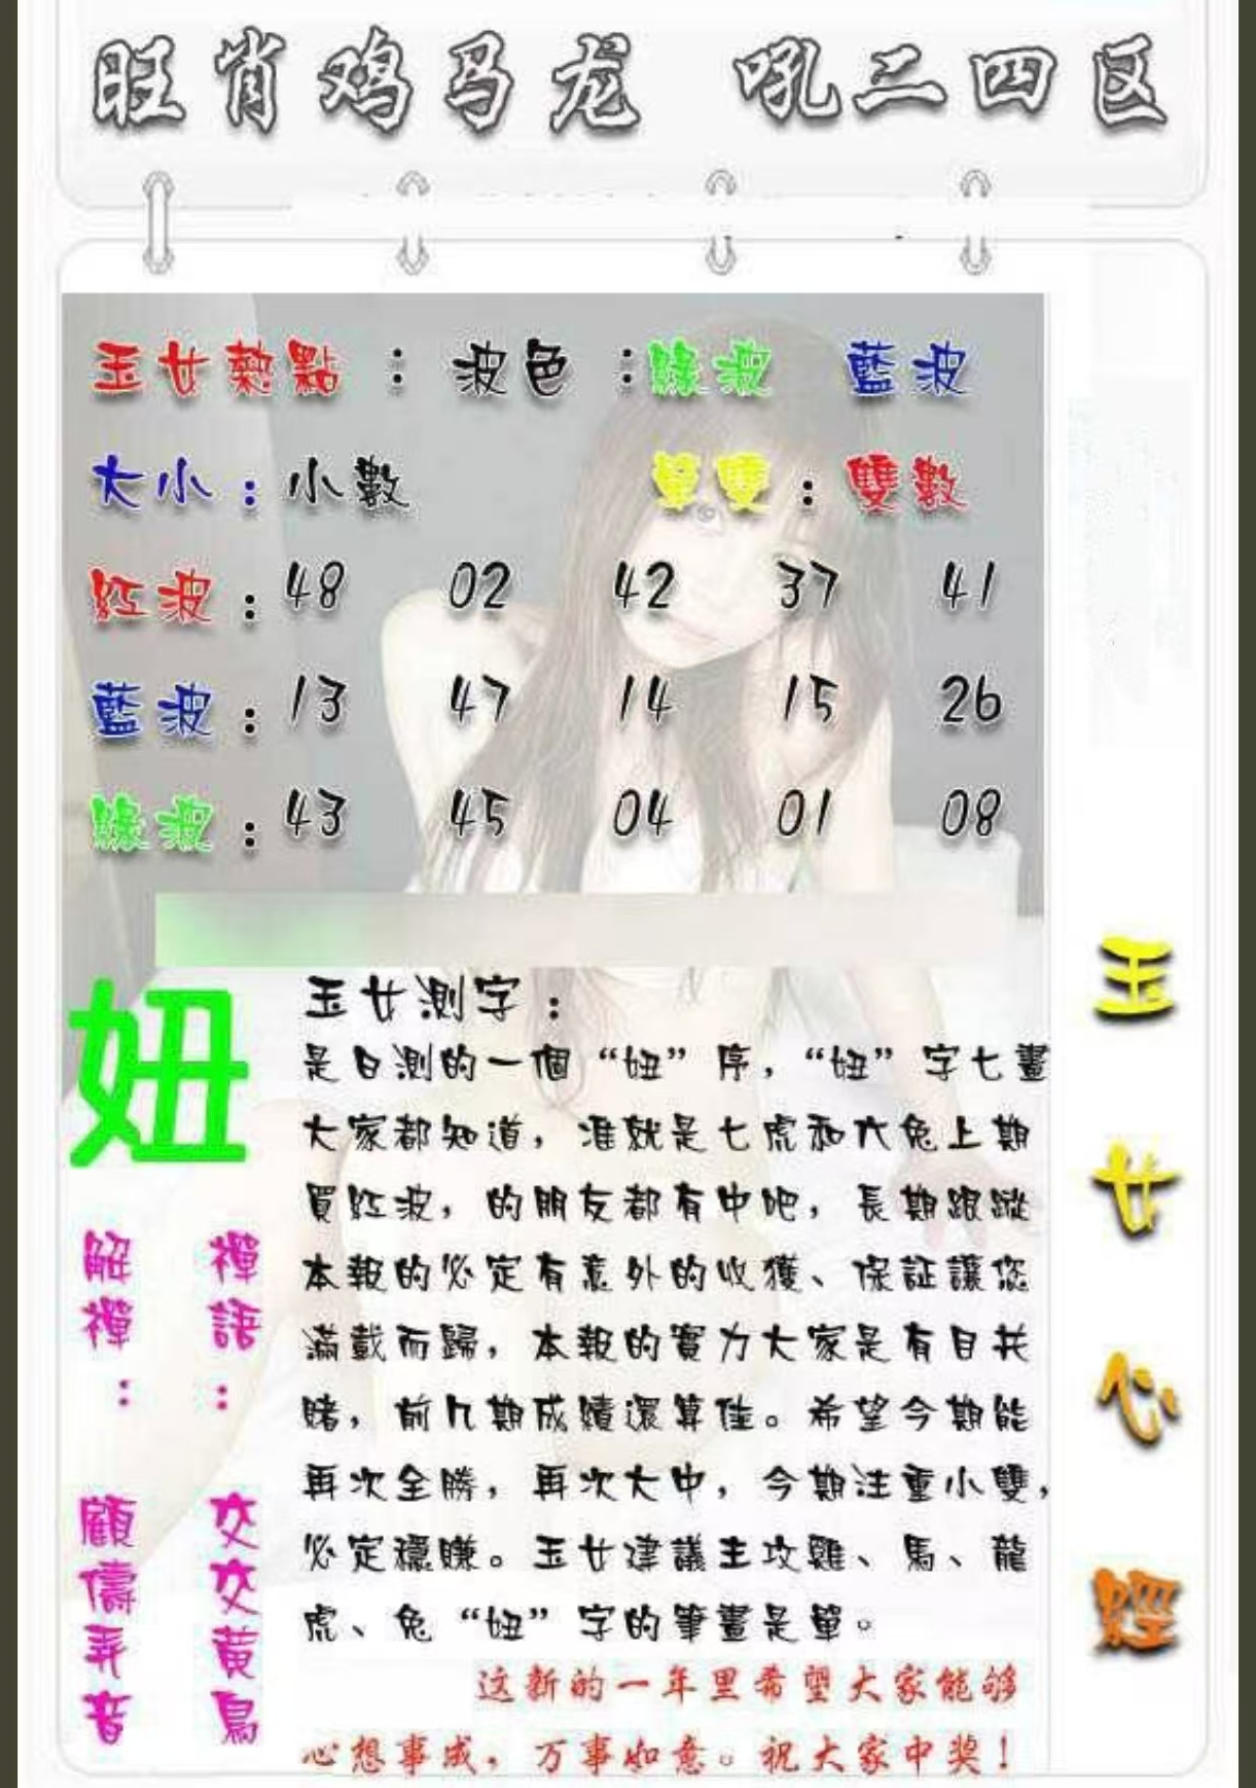 旺肖鸡马龙 吼二四区
玉女熱點：波色：綠波 藍波
大小：小數 單雙：雙數
紅波：48 02 42 37 41
藍波：13 47 14 15 26
綠波：43 45 04 01 08
妞
玉女測字：
是日測的一個“妞”序，“妞”字七畫
大家都知道，准就是七虎和六兔上期
買紅波，的朋友都有中吧，長期跟蹤
本報的必定有意外的收獲、保証讓您
滿載而歸，本報的實力大家是有目共
睹，前几期成績還算佳。希望今期能
再次全勝，再次大中，今期注重小雙，
必定穩賺。玉女建議主攻雞、馬、龍
虎、兔“妞”字的筆畫是單。
这新的一年里希望大家能够
心想事成，万事如意。祝大家中奖！
禪語：交交黃鳥
解禪：顧儔弄音
玉女心經